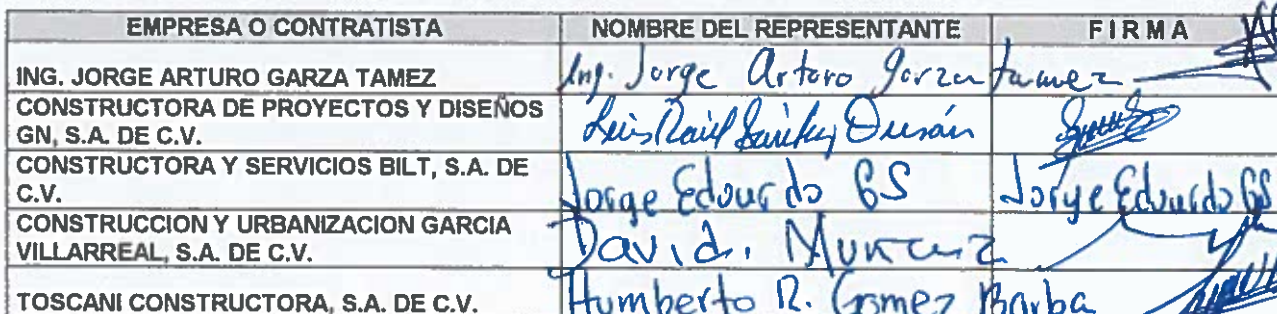 EMPRESA O CONTRATISTA NOMBRE DEL REPRESENTANTE FIRMA
ING. JORGE ARTURO GARZA TAMEZ Ing. Jorge Arturo Garza Tamez
CONSTRUCTORA DE PROYECTOS Y DISEÑOS
GN, S.A. DE C.V. Luis Raúl Sánchez Durán
CONSTRUCTORA Y SERVICIOS BILT, S.A. DE
C.V. Jorge Eduardo GS Jorge Eduardo GS
CONSTRUCCION Y URBANIZACION GARCIA
VILLARREAL, S.A. DE C.V. David.
TOSCANI CONSTRUCTORA, S.A. DE C.V. Humberto R. Gomez Barba